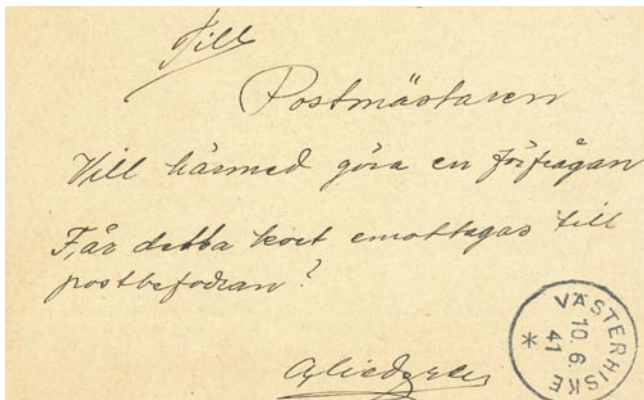 Till
Postmästaren
Vill härmed göra en förfrågan
Får detta kort emottagas till
postbefodran?
VÄSTERHISKE
10.6.
41
*